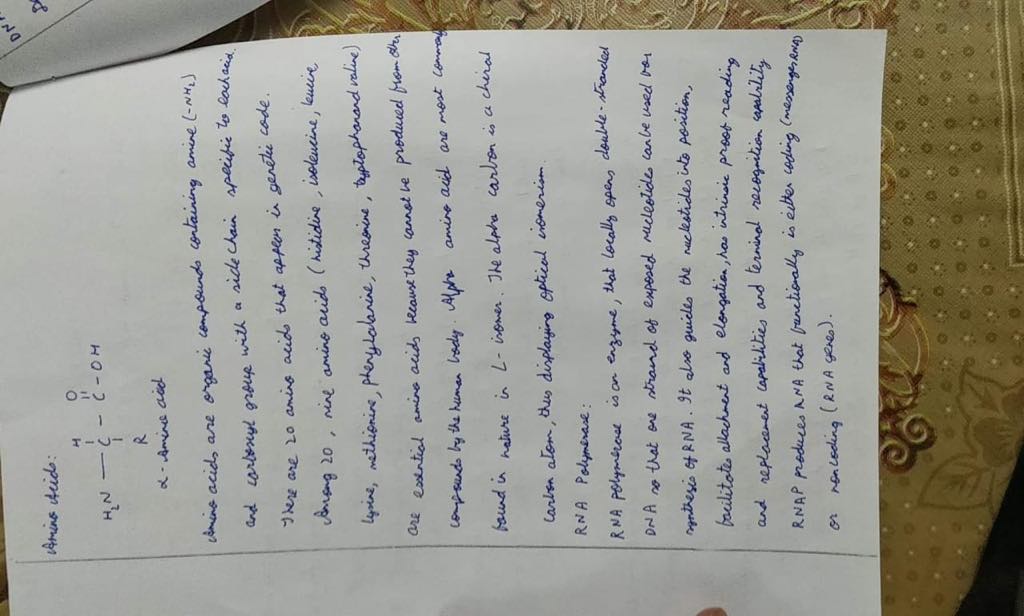 DNA
Amino Acids:
H O
H₂N — C — C - OH
R
α - Amino acid
Amino acids are organic compounds containing amine (-NH₂)
and carboxyl groups with a side chain specific to each acid.
There are 20 amino acids that appear in genetic code.
Among 20, nine amino acids (histidine, isoleucine, leucine
lysine, methionine, phenylalanine, threonine, tryptophan and valine)
are essential amino acids because they cannot be produced from other
compounds by the human body. Alpha amino acid are most commonly
found in nature in L-isomer. The alpha carbon is a chiral
carbon atom, thus displaying optical isomerism.
RNA Polymerase:
RNA polymerase is an enzyme, that locally opens double-stranded
DNA so that one strand of exposed nucleotide can be used for
synthesis of RNA. It also guides the nucleotides into position,
facilitate attachment and elongation, has intrinsic proof reading
and replacement capabilities and terminal recognition capability
RNAP produces RNA that functionally is either coding (messenger RNA)
or noncoding (RNA genes).